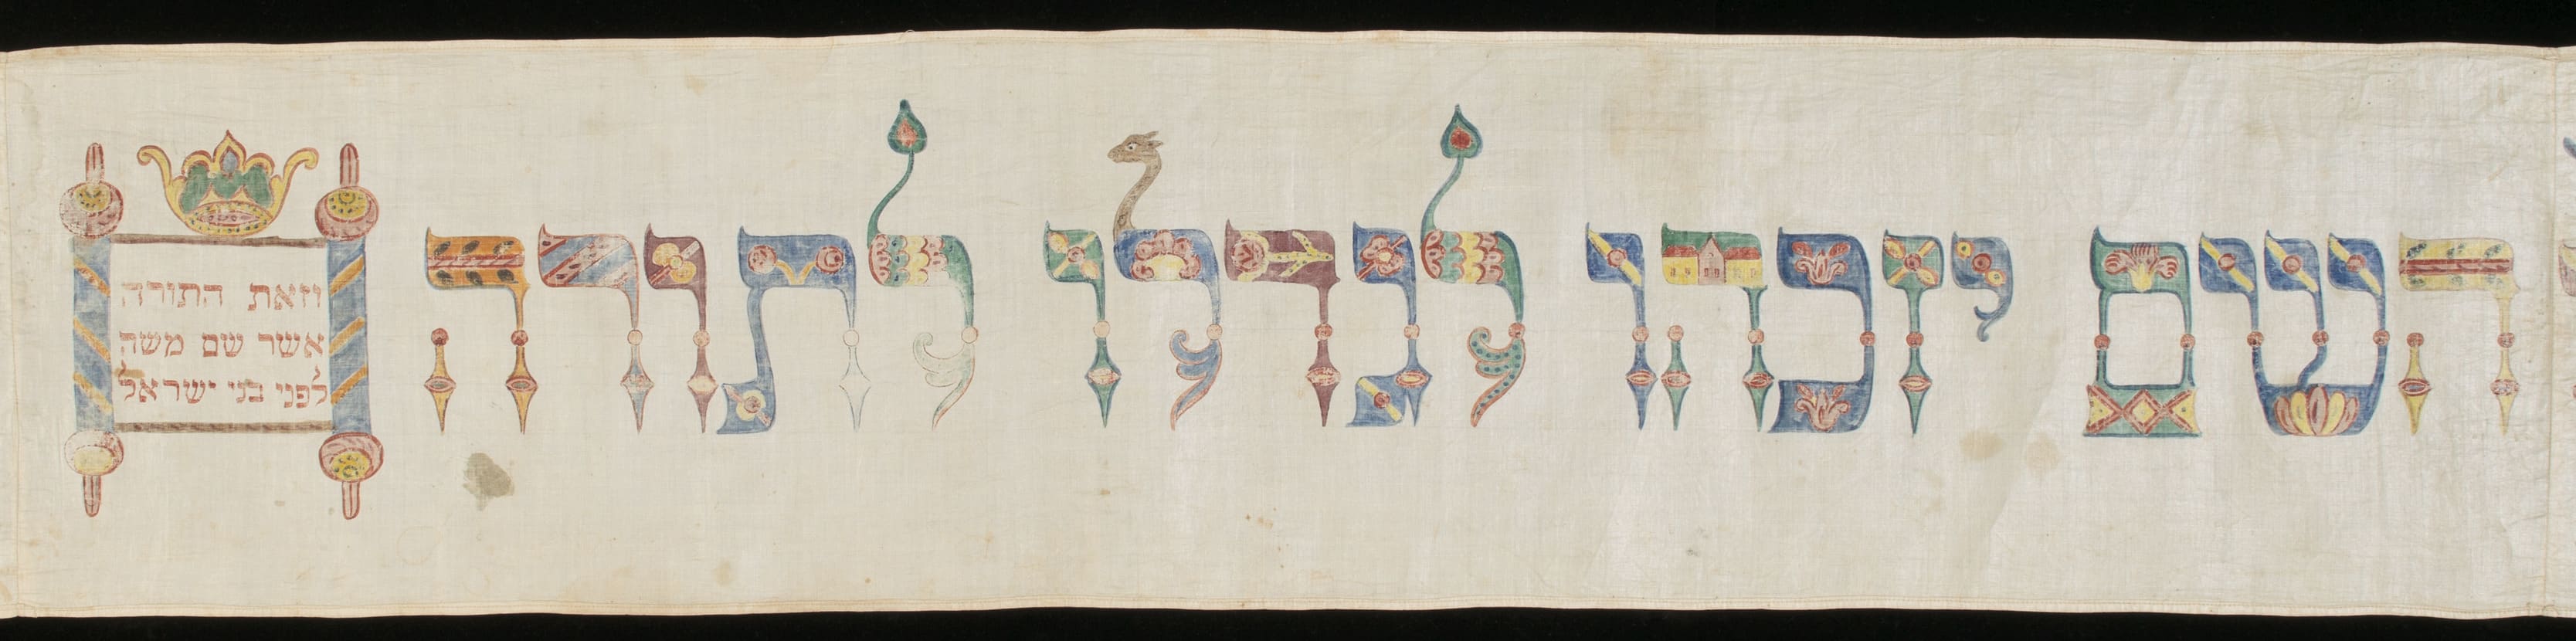 השם יזכהו לגדלו לתורה
וזאת התורה
אשר שם משה
לפני בני ישראל